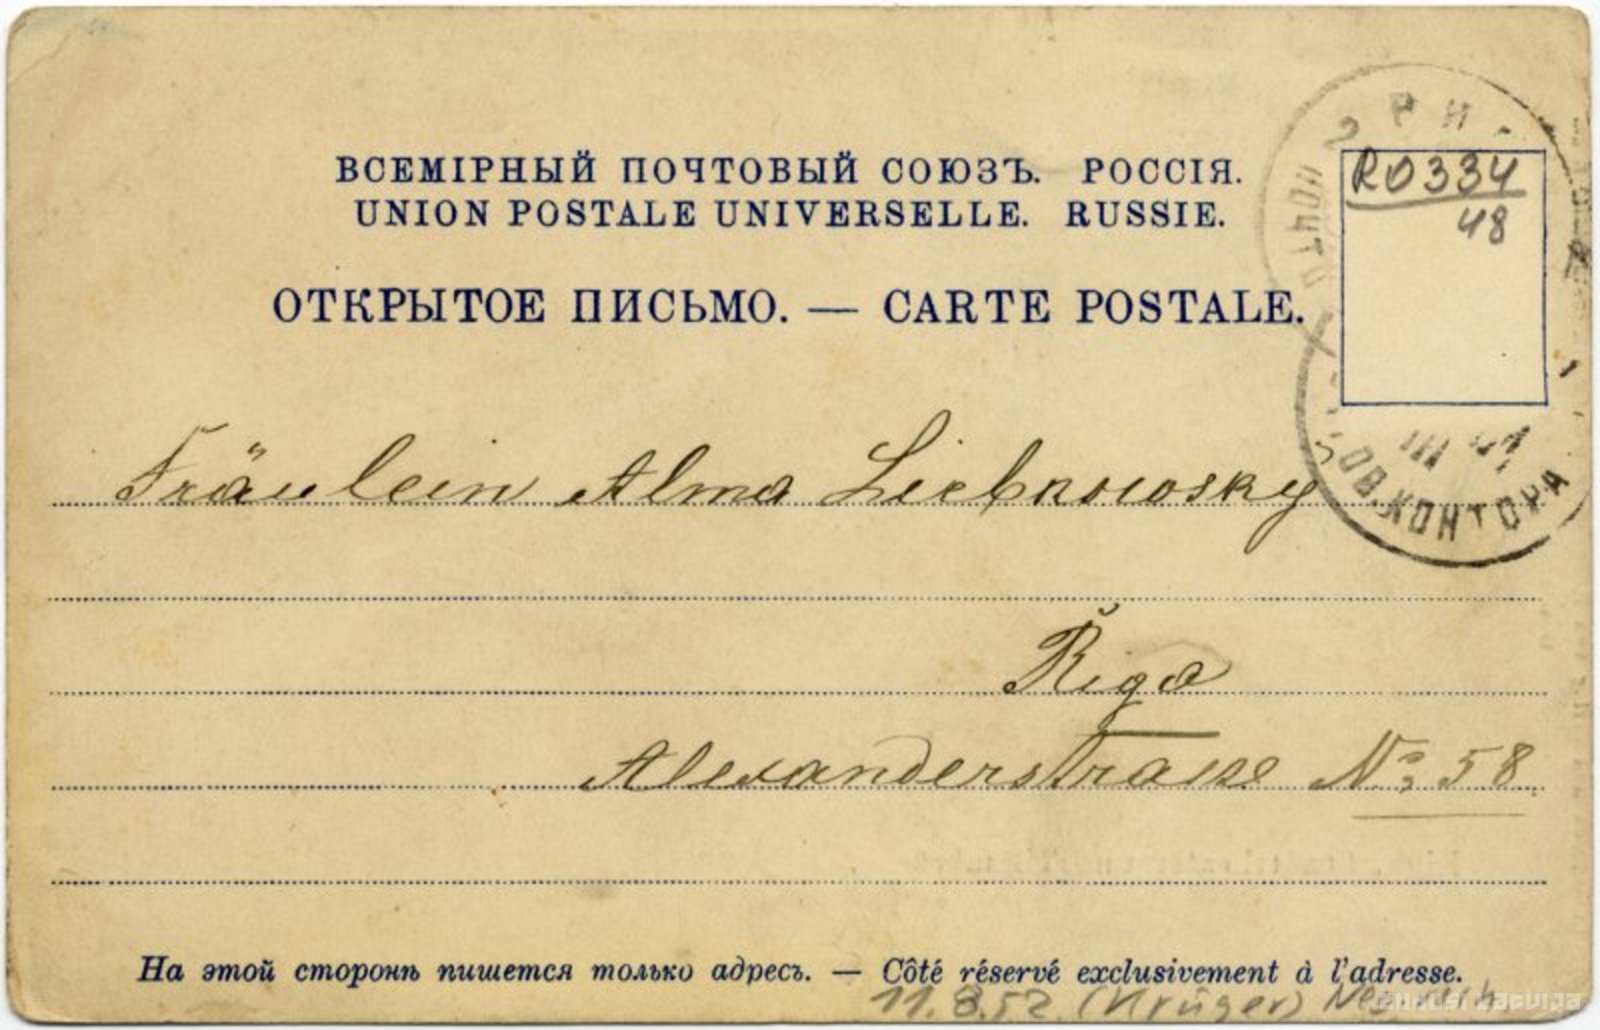 ВСЕМІРНЫЙ ПОЧТОВЫЙ СОЮЗЪ. РОССІЯ.
UNION POSTALE UNIVERSELLE. RUSSIE.
ОТКРЫТОЕ ПИСЬМО. — CARTE POSTALE.
R0334
48
КОНТОРА
Fräulein Alma Liebnowosky
Riga
Alexanderstrasse No 58
На этой сторонѣ пишется только адресъ. — Côté réservé exclusivement à l'adresse.
11.8.52 (Krüger)
zudusi latvija